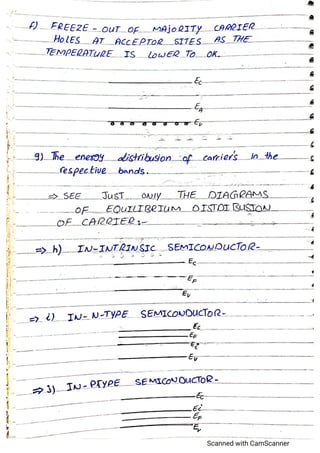 f) FREEZE-OUT OF MAJORITY CARRIER
HOLES AT ACCEPTOR SITES AS THE
TEMPERATURE IS LOWER TO OK.
Ec
EA
Ev
g) The energy distribution of carriers in the
respective bands.
⇒ SEE JUST ONLY THE DIAGRAMS
OF EQUILIBRIUM DISTDIBUSTON
OF CARRIER:-
⇒ h) IN-INTRINSIC SEMICONDUCTOR-
Ec
EF
Ev
⇒ i) IN- N-TYPE SEMICONDUCTOR-
Ec
EF
Ei
Ev
⇒ J) IN-PTYPE SEMICONDUCTOR-
Ec
Ei
EF
Ev
Scanned with CamScanner